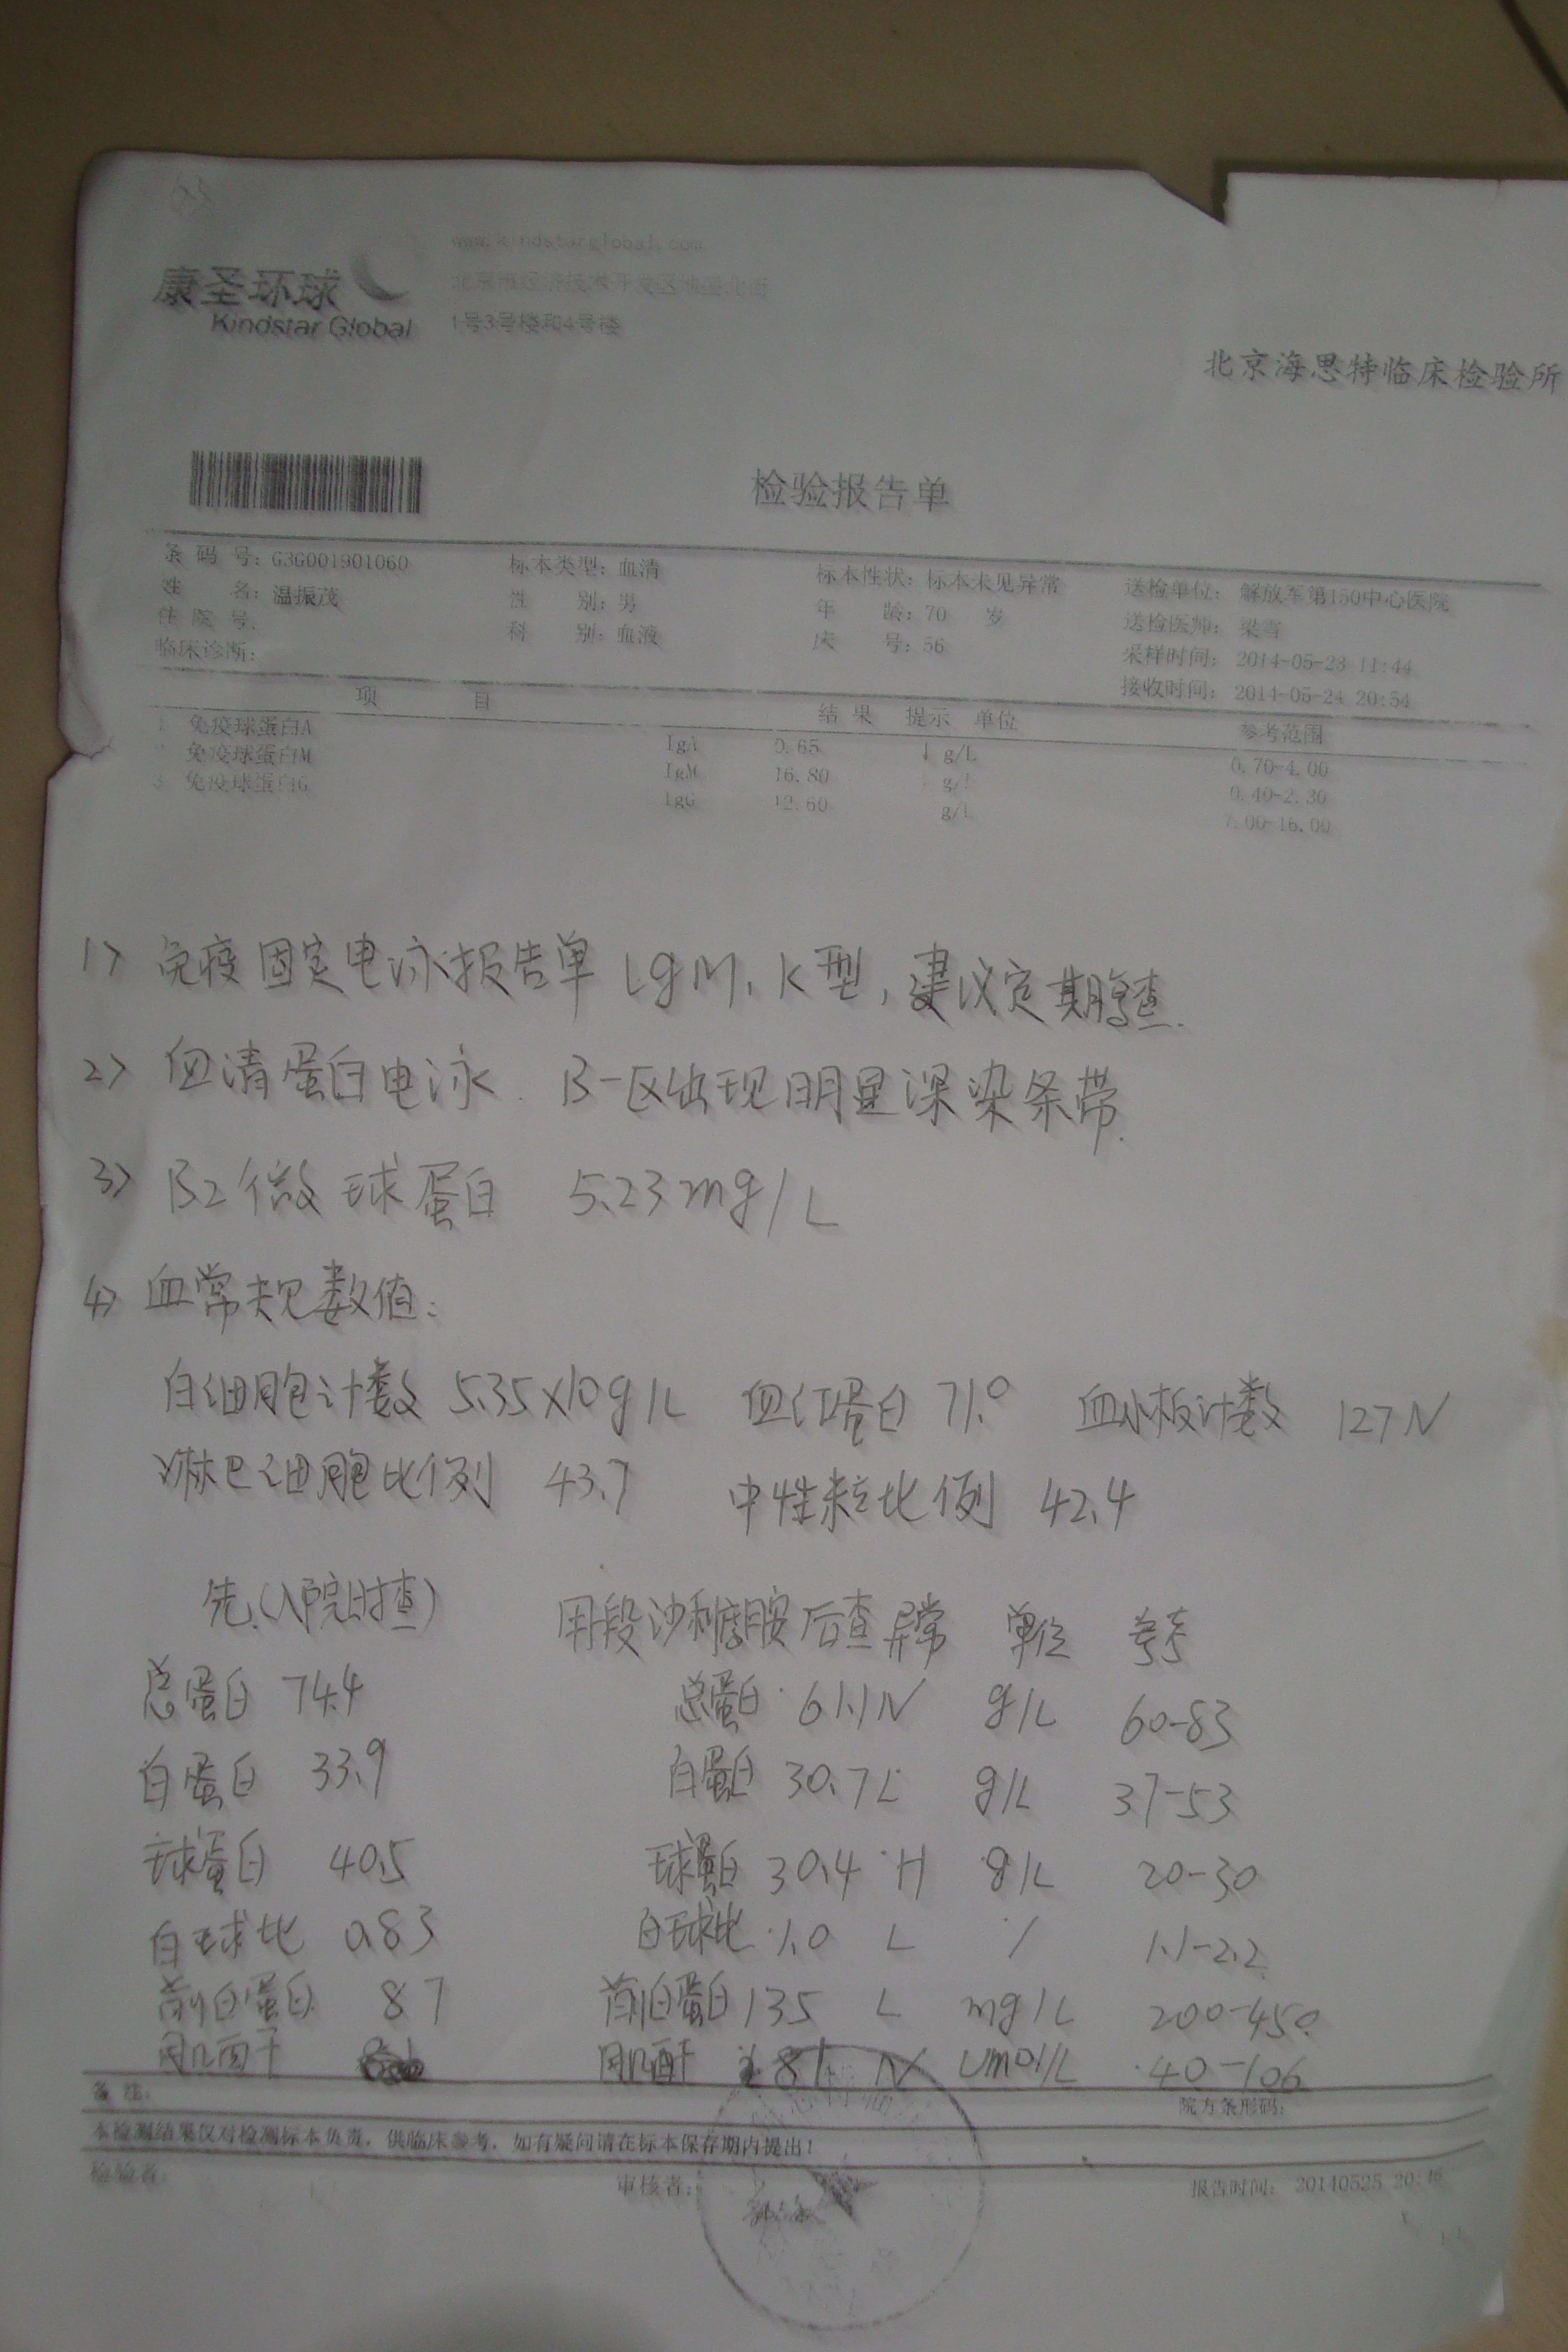 www.kindstarglobal.com
康圣环球
Kindstar Global
北京市经济技术开发区
1号3号楼和4号楼
北京海思特临床检验所
检验报告单
条码号：G3G001901060 标本类型：血清 标本性状：标本未见异常 送检单位：解放军第150中心医院
姓名：温振茂 性别：男 年龄：70 岁 送检医师：梁雪
住院号： 科别：血液 床号：56 采样时间：2014-05-23 11:44
临床诊断： 接收时间：2014-05-24 20:54
项目 结果 提示 单位 参考范围
1 免疫球蛋白A IgA 0.65 ↓ g/L 0.70-4.00
免疫球蛋白M IgM 16.80 g/L 0.40-2.30
3 免疫球蛋白G IgG 12.60 g/L 7.00-16.00
1> 免疫固定电泳报告单 IgM、K型，建议定期复查.
2> 血清蛋白电泳. B-区出现明显深染条带.
3> B2微球蛋白 5.23mg/L
4> 血常规数值：
白细胞计数 5.35×10 9/L 血红蛋白 71.0 血小板计数 127 N
淋巴细胞比例 43.7 中性粒比例 42.4
先.(入院时查) 用段沙利度胺后查 异常 单位 参考
总蛋白 74.4 总蛋白 61.1 N g/L 60-83
白蛋白 33.9 白蛋白 30.7 L g/L 37-53
球蛋白 40.5 球蛋白 30.4 H g/L 20-30
白球比 0.83 白球比 1.0 L / 1.1-2.2
前白蛋白 87 前白蛋白 135 L mg/L 200-450
肌酐 肌酐 81 N Umol/L 40-106
备注： 院方条形码：
本检测结果仅对检测标本负责，供临床参考，如有疑问请在标本保存期内提出！
检验者： 审核者： 报告时间：20140525 20:46